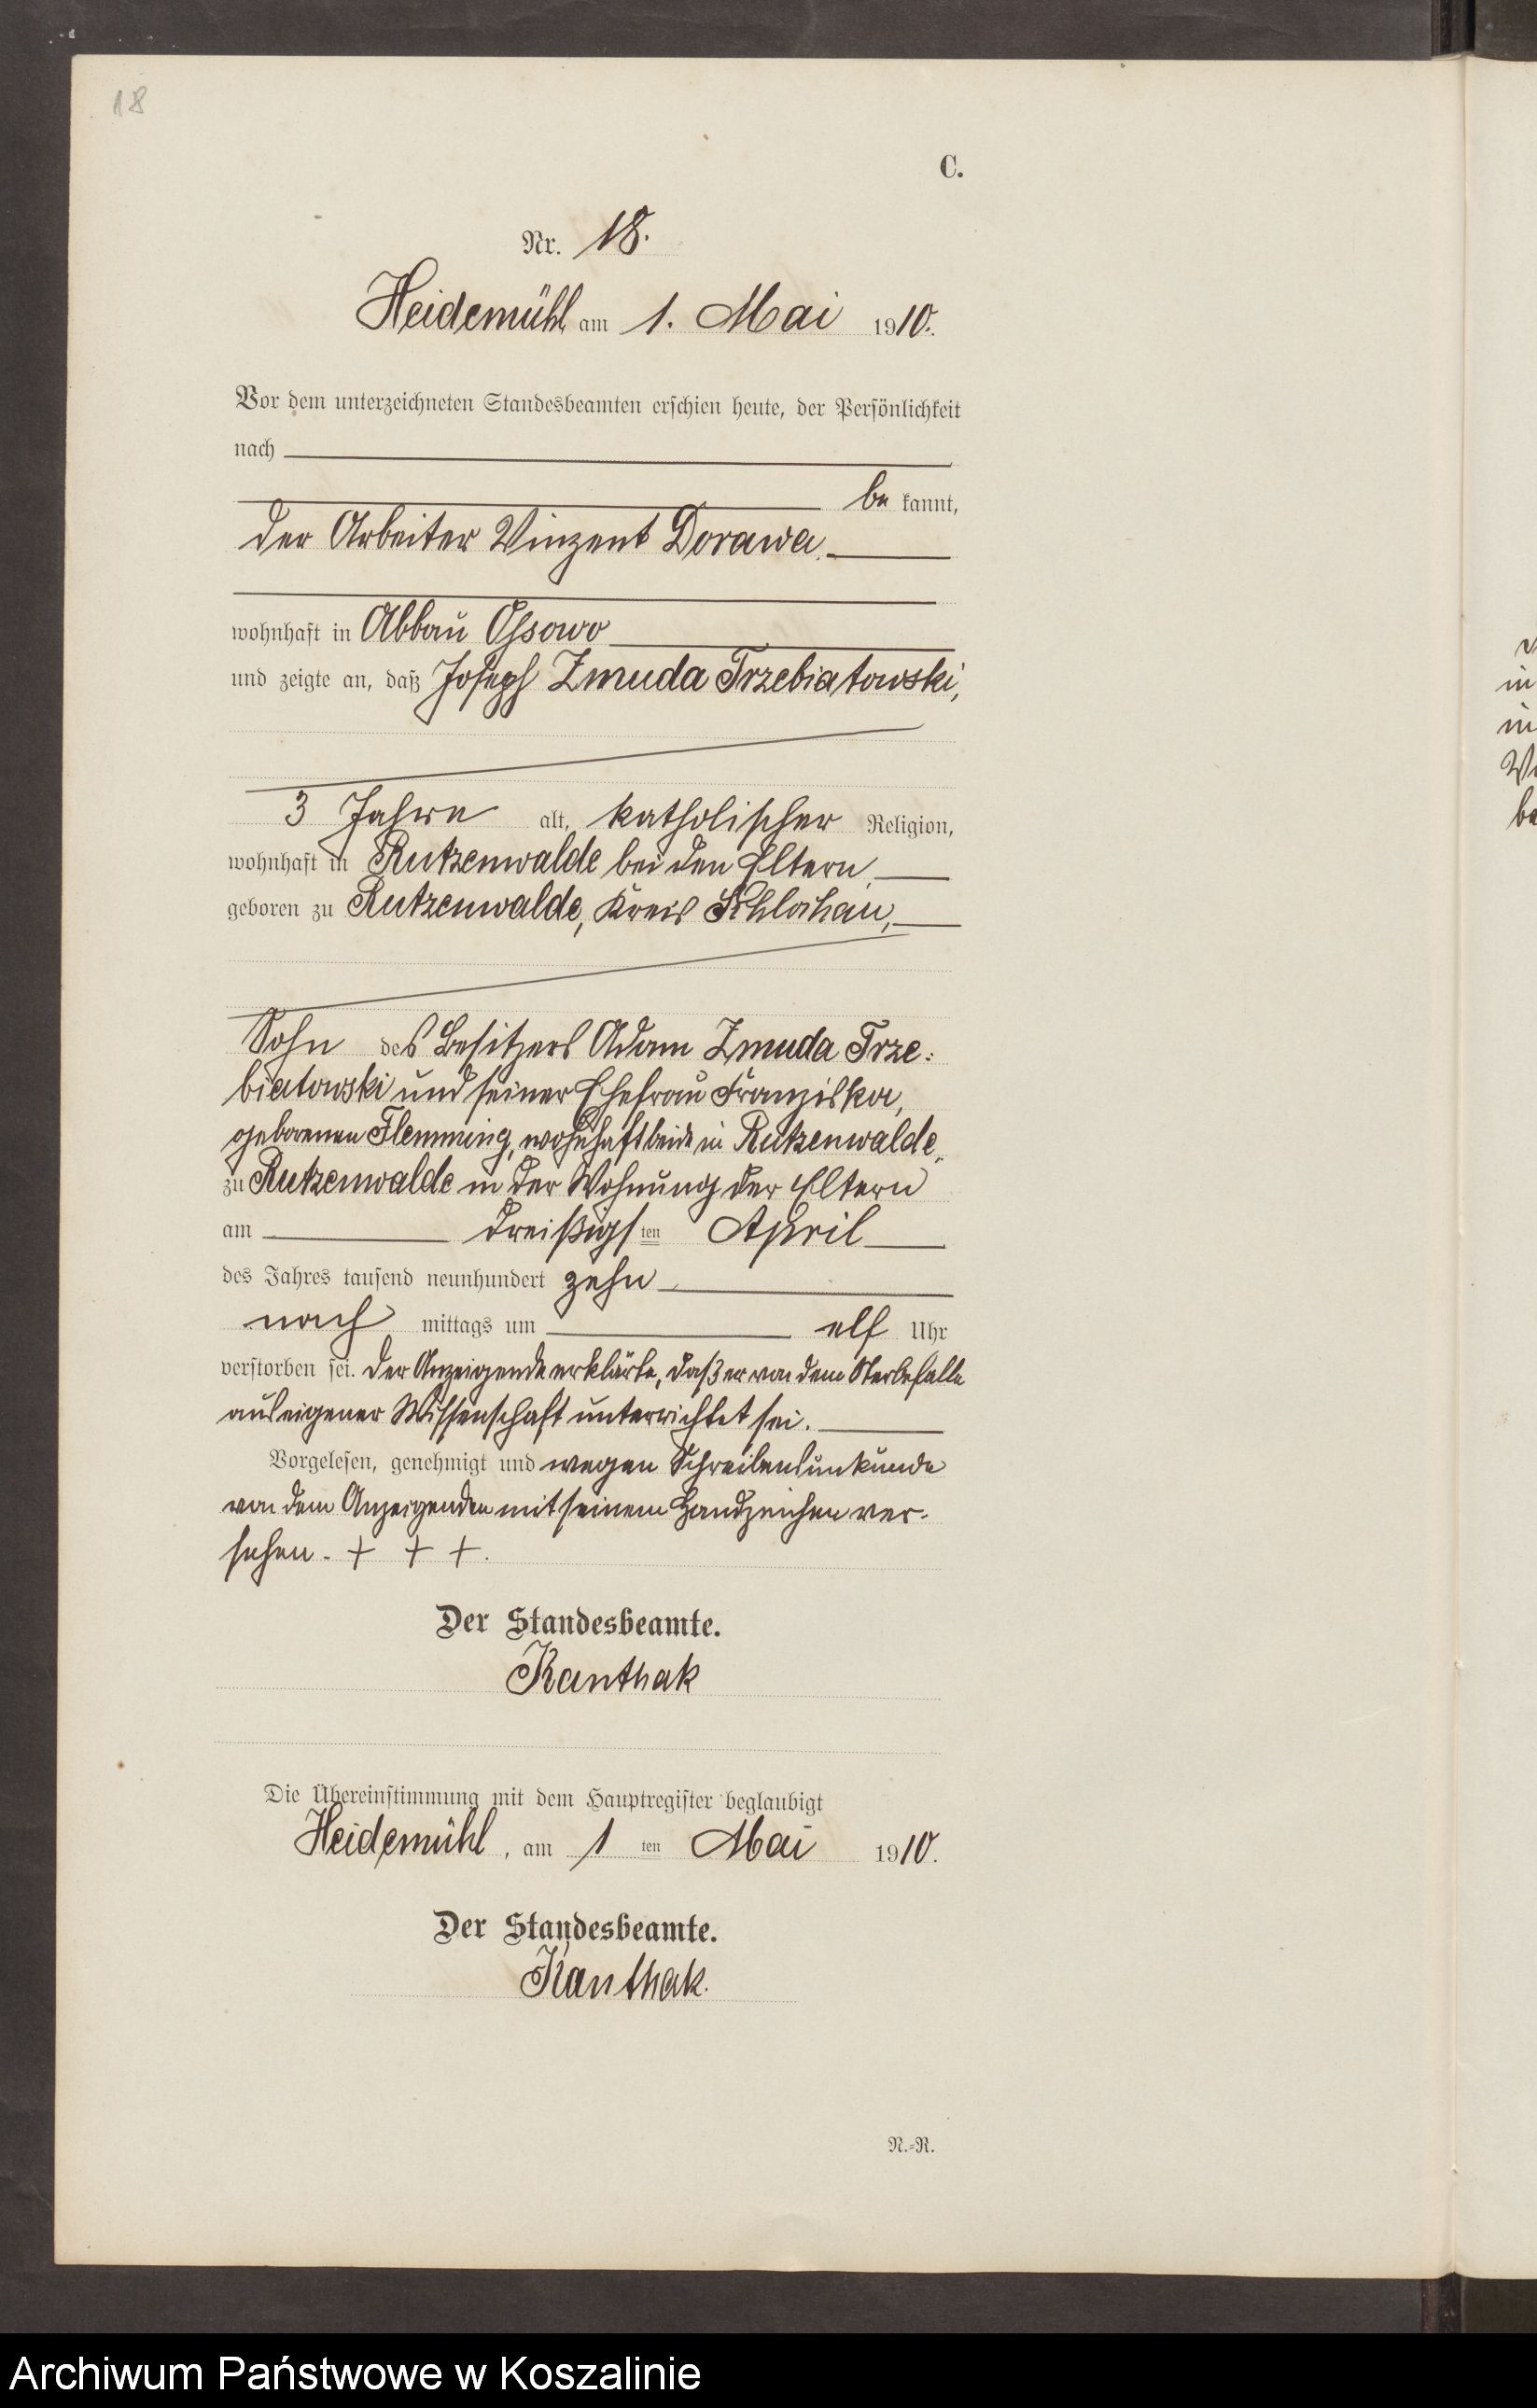 18
C.
Nr. 18.
Heidemühl am 1. Mai 1910.
Vor dem unterzeichneten Standesbeamten erschien heute, der Persönlichkeit
nach
be kannt,
der Arbeiter Vinzent Dorawa,
wohnhaft in Abbau Ossowo
und zeigte an, daß Joseph Zmuda Trzebiatowski,
3 Jahre alt, katholischer Religion,
wohnhaft in Rutzenwalde bei den Eltern,
geboren zu Rutzenwalde, Kreis Schlochau,
Sohn des Besitzers Adam Zmuda Trze:
biatowski und seiner Ehefrau Franziska,
geborenen Flemming, wohnhaft beide in Rutzenwalde,
zu Rutzenwalde in der Wohnung der Eltern
am dreißigsten April
des Jahres tausend neunhundert zehn
nach mittags um elf Uhr
verstorben sei. Der Anzeigende erklärte, daß er von dem Sterbefalle
aus eigener Wissenschaft unterrichtet sei.
Vorgelesen, genehmigt und wegen Schreibensunkunde
von dem Anzeigenden mit seinem Handzeichen ver-
sehen. + + +.
Der Standesbeamte.
Kanthak
Die Übereinstimmung mit dem Hauptregister beglaubigt
Heidemühl, am 1 ten Mai 1910.
Der Standesbeamte.
Kanthak.
N.-R.
in
in
Archiwum Państwowe w Koszalinie